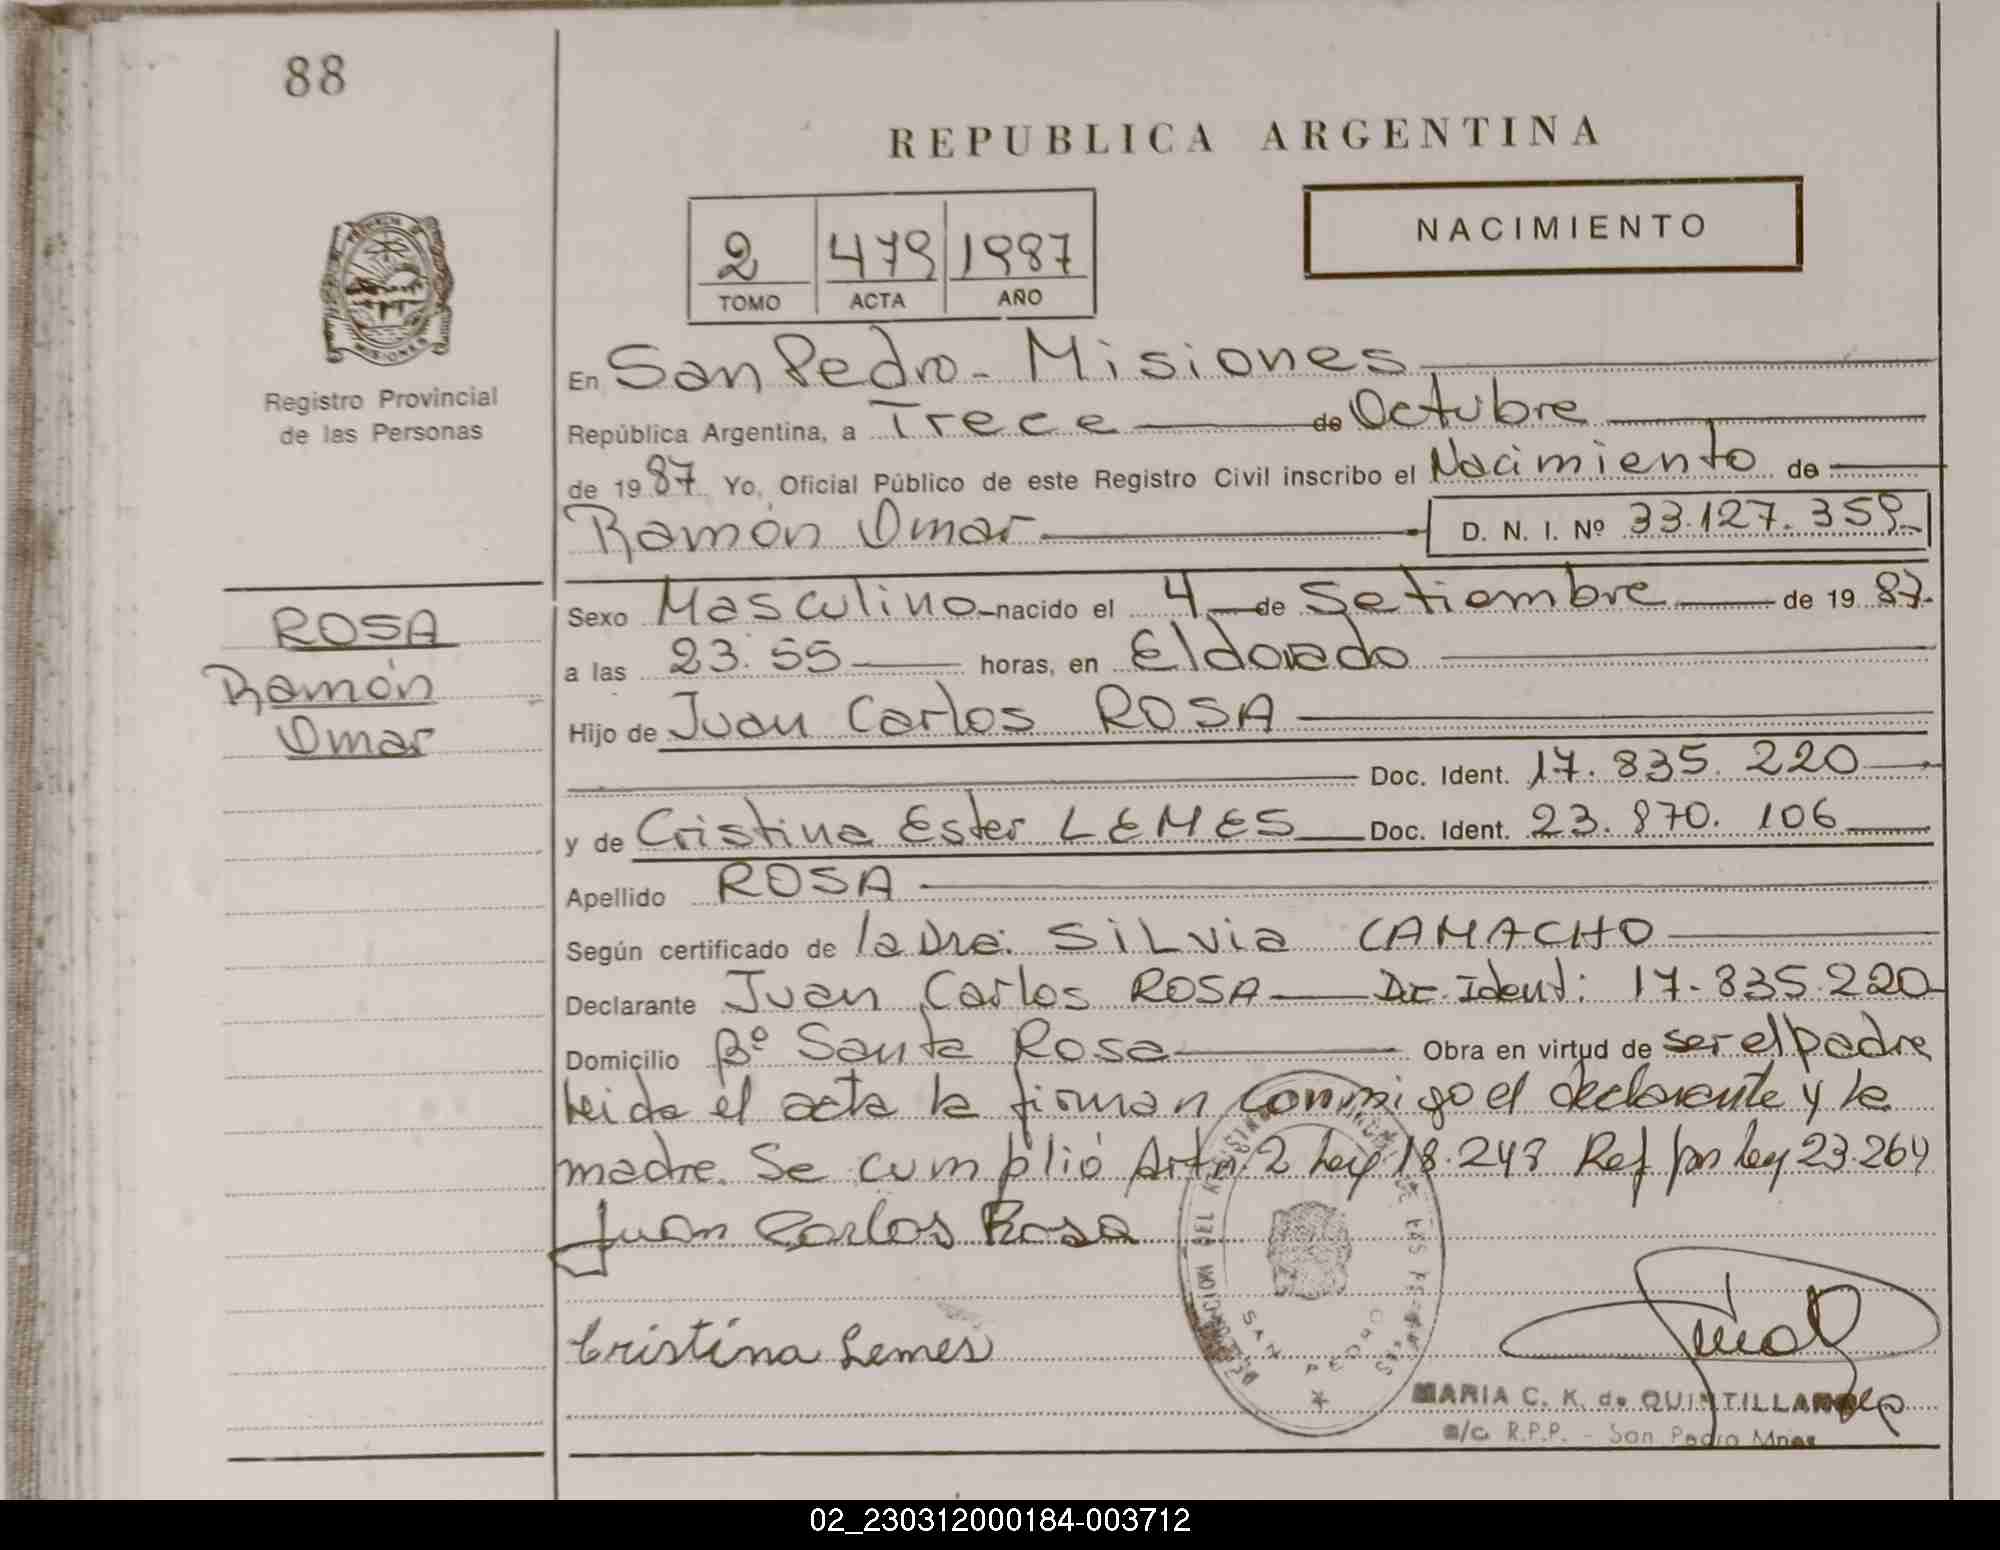 88
REPUBLICA ARGENTINA
NACIMIENTO
2 479 1987
TOMO ACTA AÑO
Registro Provincial
de las Personas
En San Pedro - Misiones
República Argentina, a Trece de Octubre
de 1987 Yo, Oficial Público de este Registro Civil inscribo el Nacimiento de
Ramón Omar D. N. I. Nº 33.127.359
ROSA
Ramón
Omar
Sexo Masculino nacido el 4 de Setiembre de 1987.
a las 23:55 horas, en Eldorado
Hijo de Juan Carlos ROSA
Doc. Ident. 17.835.220
y de Cristina Ester LEMES Doc. Ident. 23.870.106
Apellido ROSA
Según certificado de la Dra. SILvia CAMACHO
Declarante Juan Carlos ROSA Dc. Ident: 17.835.220
Domicilio Bº Santa Rosa Obra en virtud de ser el padre
leida el acta la firman conmigo el declarante y la
madre. Se cumplió Artn. 2 Ley 18.248 Ref por ley 23.264
Juan Carlos Rosa
Cristina Lemes
SAN PEDRO
MARIA C. K. de QUINTILLAN
a/c R.P.P. - San Pedro Mnes
02_230312000184-003712